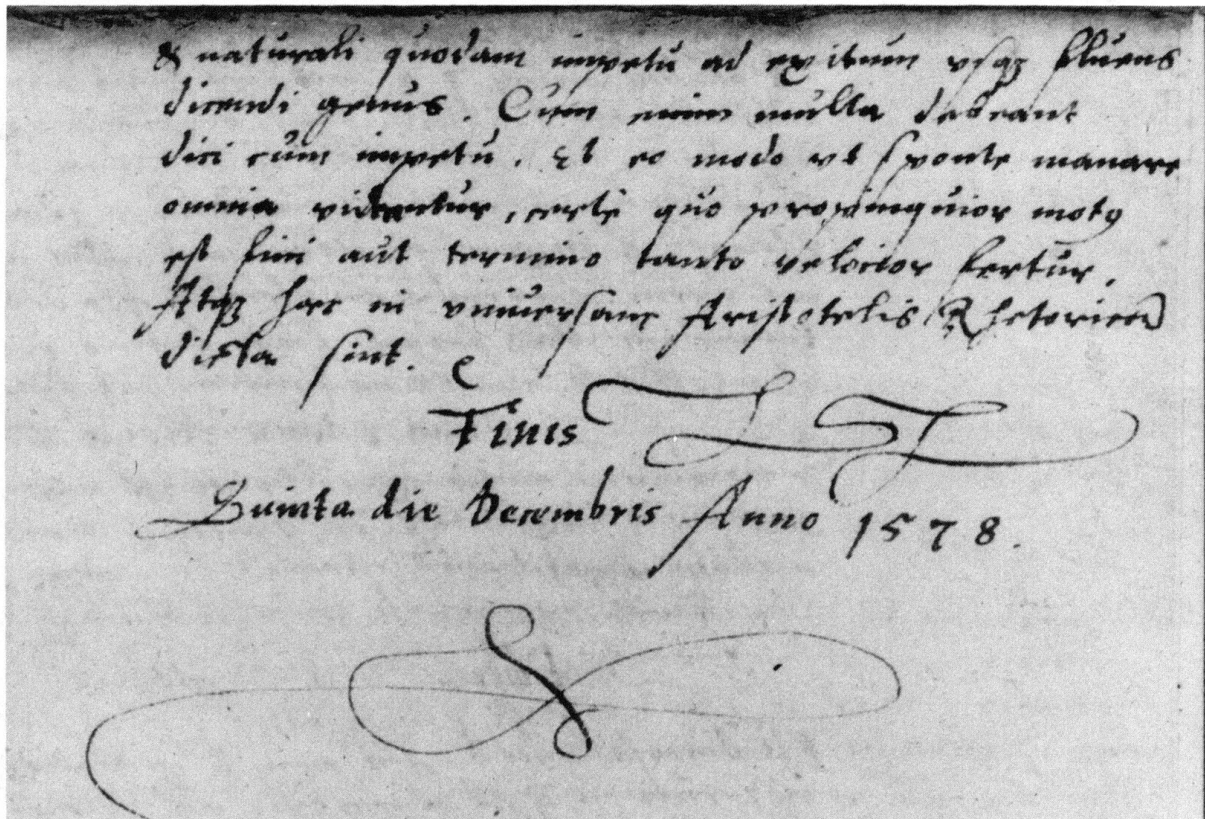 & naturali quodam impetu ad exitum vsqꝫ fluens
dicendi genus. Cum enim multa debeant
dici cum impetu. Et eo modo vt sponte manare
omnia videantur, certè quo propinquior motꝰ
est fini aut termino tanto velocior fertur.
Atqꝫ haec in vniuersam Aristotelis Rhetoricē
dicta sint.
Finis
Quinta die Decembris Anno 1578.